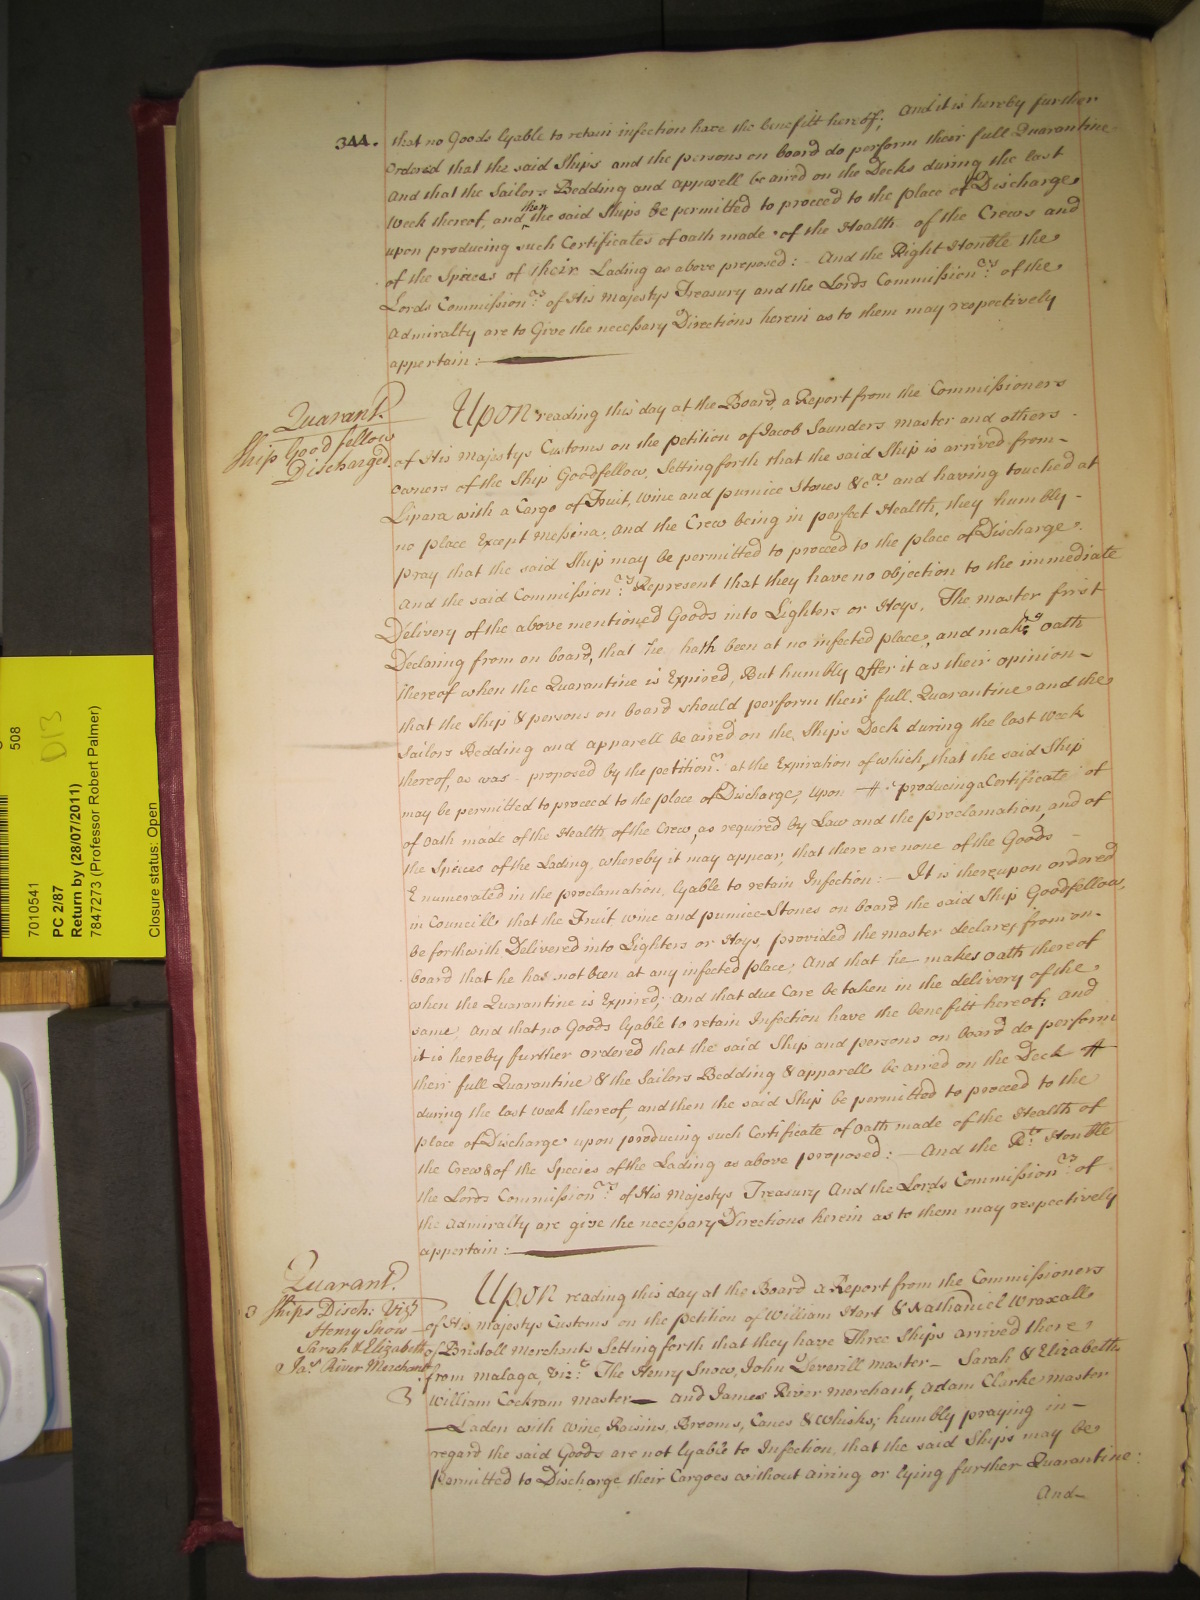 344.
that no Goods lyable to retain infection have the benefitt hereof; And it is hereby further
Ordered that the said Ships and the persons on board do perform their full Quarantine
And that the Sailors Bedding and apparell be aired on the Decks during the last
Week thereof, and then the said Ships be permitted to proceed to the place of Discharge
upon producing such Certificates of oath made of the Health of the Crews and
of the Spices of their Lading as above proposed: - And the Right Honble the
Lords Commission.rs of His Majestys Treasury and the Lords Commission.rs of the
Admiralty are to Give the necessary Directions herein as to them may respectively
appertain:
Quarant.
Ship Goodfellow
Discharged
Upon reading this day at the Board, a Report from the Commissioners
of His Majestys Customs on the petition of Jacob Saunders master and others
owners of the Ship Goodfellow, Setting forth that the said Ship is arrived from
Lipara with a Cargo of Fruit, wine and pumice Stones &ca. and having touched at
no place Except Messina, and the Crew being in perfect Health, they humbly
pray that the said Ship may be permitted to proceed to the place of Discharge.
And the said Commission.rs Represent that they have no objection to the immediate
Delivery of the above mentioned Goods into Lighters or Hoys, The master first
Declaring from on board, that he hath been at no infected place, and makes oath
thereof when the Quarantine is Expired, But humbly offer it as their opinion
that the Ship & persons on board should perform their full Quarantine and the
Sailors Bedding and apparell be aired on the Ships Deck during the last Week
thereof, as was proposed by the petition.r at the Expiration of which, that the said Ship
may be permitted to proceed to the place of Discharge, upon producing a Certificate of
of oath made of the Health of the Crew, as required by Law and the proclamation, and of
the Spices of the Lading whereby it may appear, that there are none of the Goods
Enumerated in the proclamation, lyable to retain Infection: - It is thereupon ordered
in Councill that the Fruit, wine and pumice-Stones on board the said Ship Goodfellow,
be forthwith Delivered into Lighters or Hoys, provided the master declares from on
board that he has not been at any infected place; And that he makes oath thereof
when the Quarantine is Expired; And that due Care be taken in the delivery of the
same And that no Goods lyable to retain Infection have the benefitt hereof; and
it is hereby further ordered that the said Ship and persons on board do perform
their full Quarantine & the Sailors Bedding & apparell be aired on the Deck
during the last week thereof, and then the said Ship be permitted to proceed to the
place of Discharge upon producing such Certificate of oath made of the Health of
the Crew & of the Species of the Lading as above proposed: - And the Rt. Honble
the Lords Commission.rs of His Majestys Treasury And the Lords Commission.rs of
the Admiralty are give the necessary Directions herein as to them may respectively
appertain:
Quarant.
3 Ships Disch: Vizt
Henry Snow
Sarah & Elizabeth
& Jas. River Merchant
3
Upon reading this day at the Board a Report from the Commissioners
of His Majestys Customs on the petition of William Hart & Nathaniel Wraxall
of Bristoll Merchants Setting forth that they have Three Ships arrived there
from malaga, vizt. The Henry Snow, John Deverill master - Sarah & Elizabeth
William Cockram master - and James River Merchant, Adam Clarke master
- Laden with Wine, Raisins, Brooms, Canes & Whisks; humbly praying in
regard the said Goods are not lyable to Infection, that the said Ships may be
permitted to Discharge their Cargoes without airing or lying further Quarantine:
And
508
D13
7010541
PC 2/87
Return by (28/07/2011)
7847273 (Professor Robert Palmer)
Closure status: Open